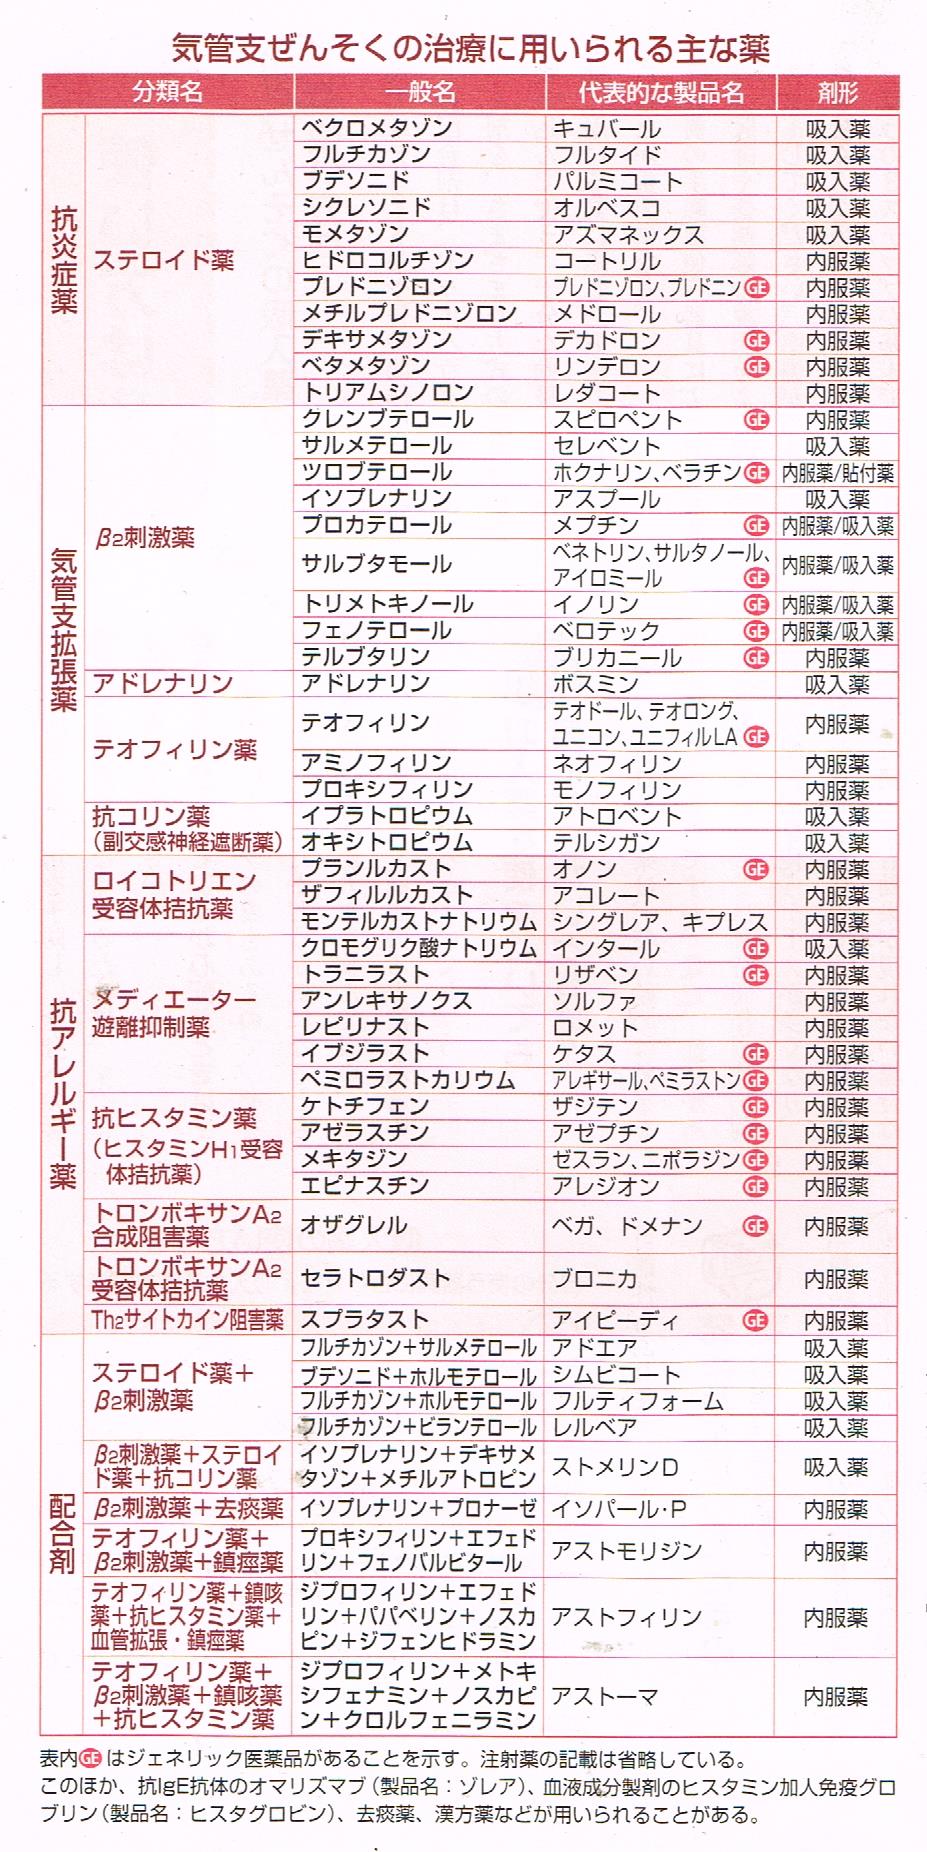 気管支ぜんそくの治療に用いられる主な薬
分類名 一般名 代表的な製品名 剤形
抗炎症薬
ステロイド薬
ベクロメタゾン キュバール 吸入薬
フルチカゾン フルタイド 吸入薬
ブデソニド パルミコート 吸入薬
シクレソニド オルベスコ 吸入薬
モメタゾン アズマネックス 吸入薬
ヒドロコルチゾン コートリル 内服薬
プレドニゾロン プレドニゾロン、プレドニン GE 内服薬
メチルプレドニゾロン メドロール 内服薬
デキサメタゾン デカドロン GE 内服薬
ベタメタゾン リンデロン GE 内服薬
トリアムシノロン レダコート 内服薬
気管支拡張薬
β2刺激薬
クレンブテロール スピロペント GE 内服薬
サルメテロール セレベント 吸入薬
ツロブテロール ホクナリン、ベラチン GE 内服薬/貼付薬
イソプレナリン アスプール 吸入薬
プロカテロール メプチン GE 内服薬/吸入薬
サルブタモール ベネトリン、サルタノール、 内服薬/吸入薬
アイロミール GE
トリメトキノール イノリン GE 内服薬/吸入薬
フェノテロール ベロテック GE 内服薬/吸入薬
テルブタリン ブリカニール GE 内服薬
アドレナリン アドレナリン ボスミン 吸入薬
テオフィリン薬
テオフィリン テオドール、テオロング、 内服薬
ユニコン、ユニフィルLA GE
アミノフィリン ネオフィリン 内服薬
プロキシフィリン モノフィリン 内服薬
抗コリン薬
（副交感神経遮断薬）
イプラトロピウム アトロベント 吸入薬
オキシトロピウム テルシガン 吸入薬
抗アレルギー薬
ロイコトリエン
受容体拮抗薬
プランルカスト オノン GE 内服薬
ザフィルルカスト アコレート 内服薬
モンテルカストナトリウム シングレア、キプレス 内服薬
メディエーター
遊離抑制薬
クロモグリク酸ナトリウム インタール GE 吸入薬
トラニラスト リザベン GE 内服薬
アンレキサノクス ソルファ 内服薬
レピリナスト ロメット 内服薬
イブジラスト ケタス GE 内服薬
ペミロラストカリウム アレギサール、ペミラストン GE 内服薬
抗ヒスタミン薬
（ヒスタミンH1受容
体拮抗薬）
ケトチフェン ザジテン GE 内服薬
アゼラスチン アゼプチン GE 内服薬
メキタジン ゼスラン、ニポラジン GE 内服薬
エピナスチン アレジオン GE 内服薬
トロンボキサンA2
合成阻害薬
オザグレル ベガ、ドメナン GE 内服薬
トロンボキサンA2
受容体拮抗薬
セラトロダスト ブロニカ 内服薬
Th2サイトカイン阻害薬 スプラタスト アイピーディ GE 内服薬
配合剤
ステロイド薬＋
β2刺激薬
フルチカゾン＋サルメテロール アドエア 吸入薬
ブデソニド＋ホルモテロール シムビコート 吸入薬
フルチカゾン＋ホルモテロール フルティフォーム 吸入薬
フルチカゾン＋ビランテロール レルベア 吸入薬
β2刺激薬＋ステロイ
ド薬＋抗コリン薬
イソプレナリン＋デキサメ
タゾン＋メチルアトロピン
ストメリンD 吸入薬
β2刺激薬＋去痰薬 イソプレナリン＋プロナーゼ イソパール・P 内服薬
テオフィリン薬＋
β2刺激薬＋鎮痙薬
プロキシフィリン＋エフェド
リン＋フェノバルビタール
アストモリジン 内服薬
テオフィリン薬＋鎮咳
薬＋抗ヒスタミン薬＋
血管拡張・鎮痙薬
ジプロフィリン＋エフェド
リン＋パパベリン＋ノスカ
ピン＋ジフェンヒドラミン
アストフィリン 内服薬
テオフィリン薬＋
β2刺激薬＋鎮咳薬
＋抗ヒスタミン薬
ジプロフィリン＋メトキ
シフェナミン＋ノスカピ
ン＋クロルフェニラミン
アストーマ 内服薬
表内GEはジェネリック医薬品があることを示す。注射薬の記載は省略している。
このほか、抗IgE抗体のオマリズマブ（製品名：ゾレア）、血液成分製剤のヒスタミン加人免疫グロ
ブリン（製品名：ヒスタグロビン）、去痰薬、漢方薬などが用いられることがある。